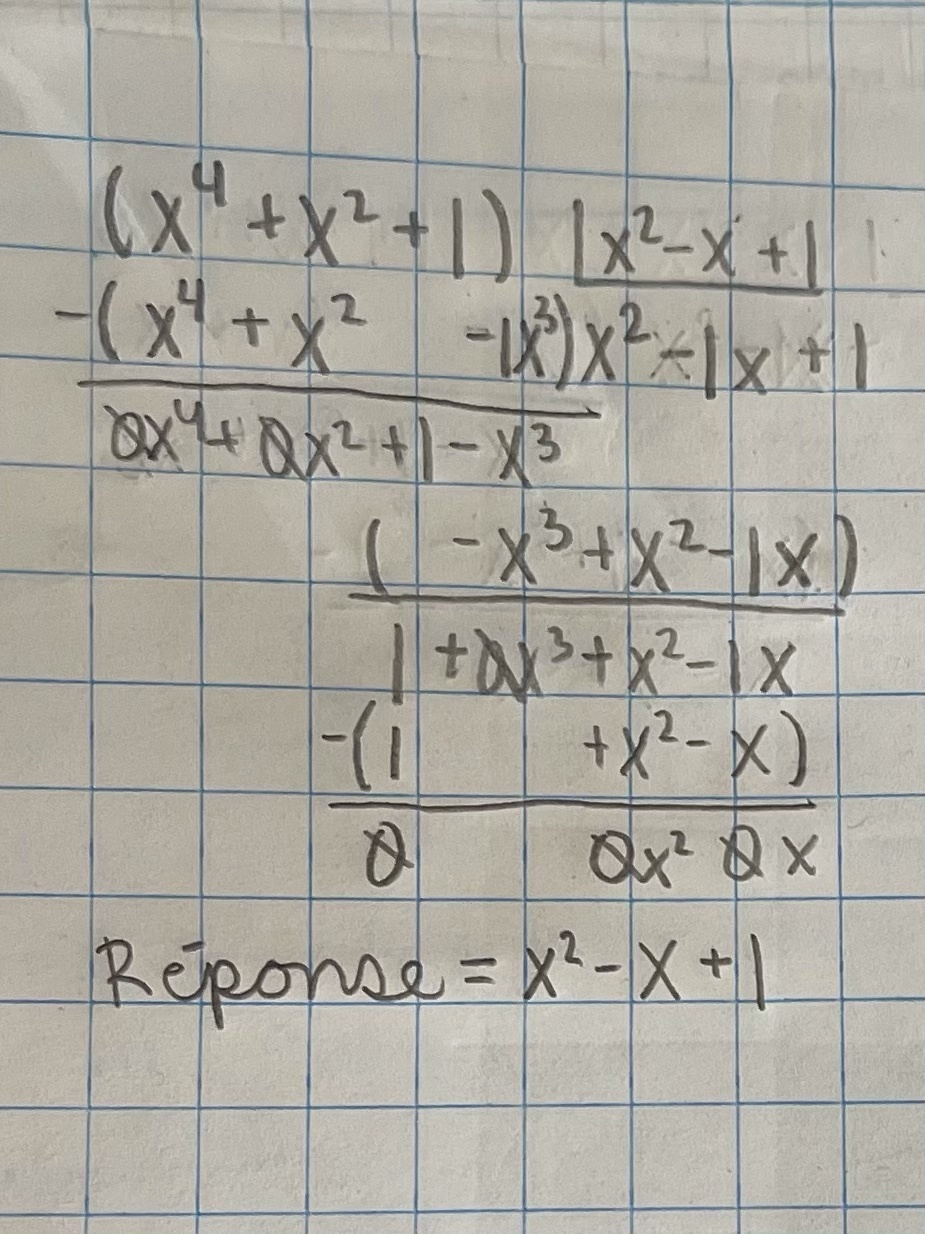 (x⁴ + x² + 1) |x² - x + 1
-(x⁴ + x² -1x³) x² - 1x + 1
0x⁴ + 0x² + 1 - x³
( - x³ + x² - 1x)
1 + 0x³ + x² - 1x
-(1 + x² - x)
0 0x² 0x
Réponse = x² - x + 1